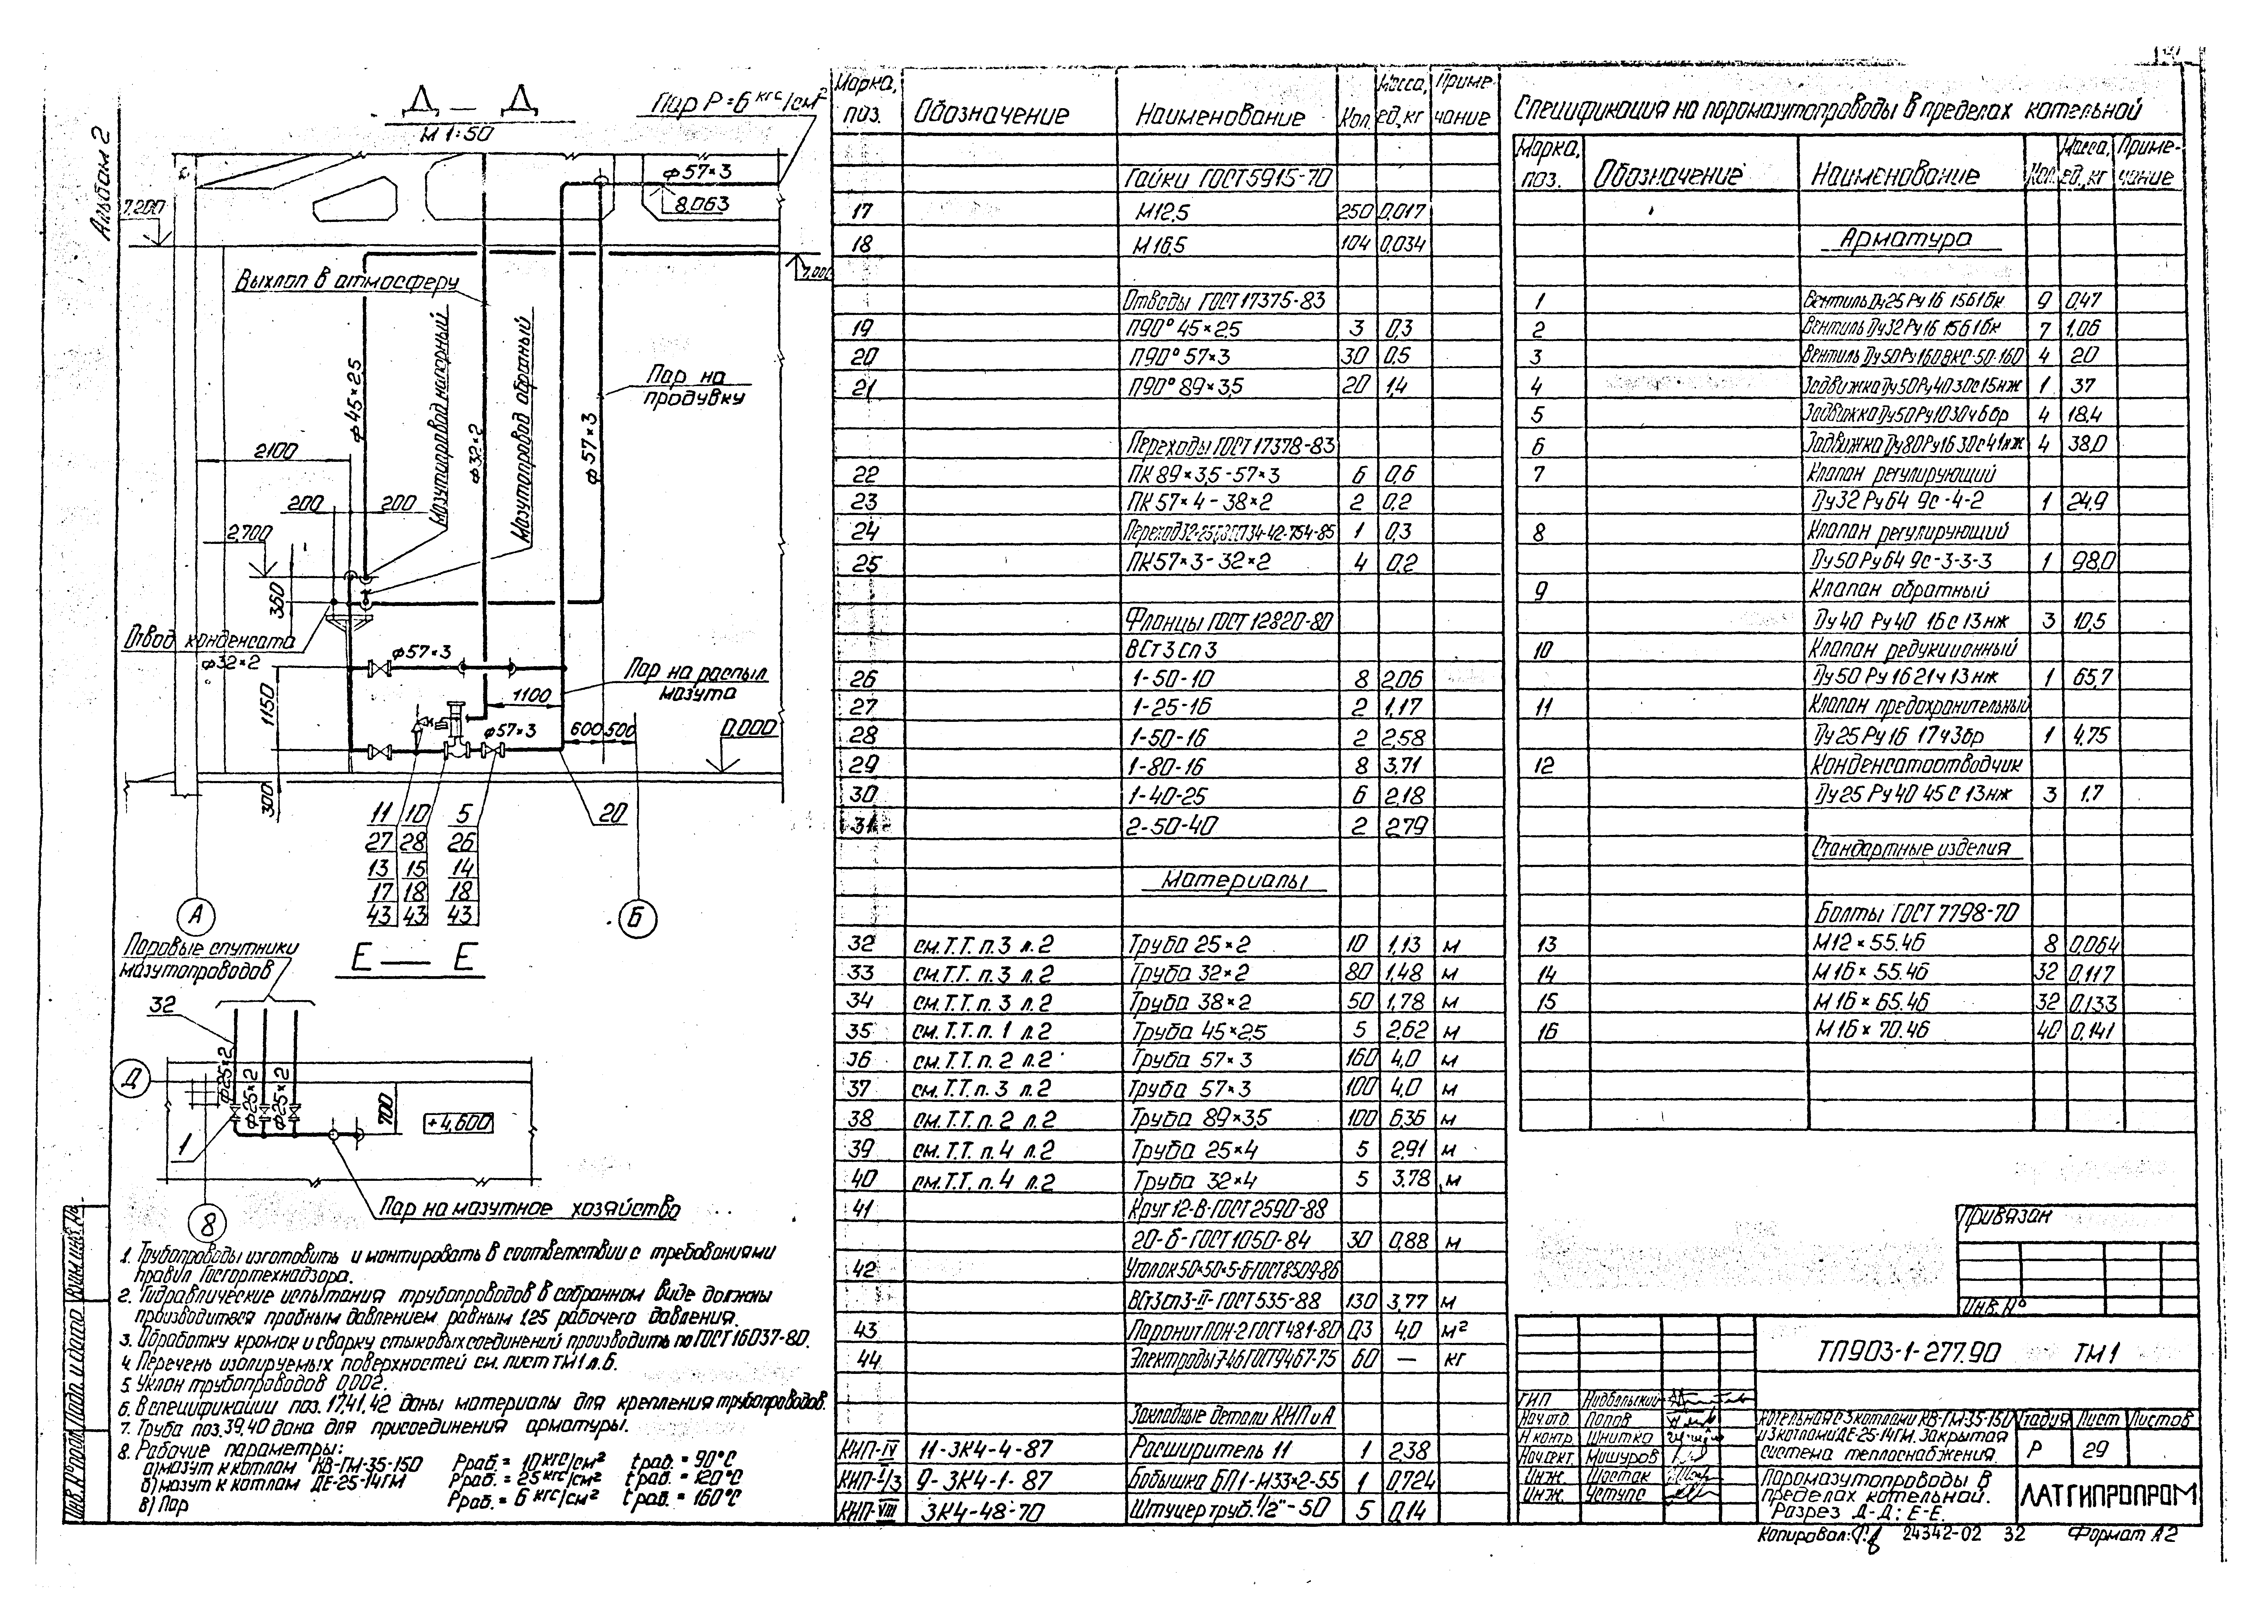 Альбом 2
Д — Д
М 1:50
Пар Р=6 кгс/см²
ф57×3
8,063
7,200
7,000
Выхлоп в атмосферу
Мазутопровод напорный
Мазутопровод обратный
ф45×2,5
ф32×2
ф57×3
Пар на
продувку
2100
200 200
2,700
350
Отвод конденсата
ф32×2
ф57×3
Пар на распыл
мазута
1100
1150
ф57×3
600 500
0,000
300
11 10 5 20
27 28 26
13 15 14
17 18 18
43 43 43
А Б
Е — Е
Паровые спутники
мазутопроводов
32
ф25×2 ф25×2 ф25×2
Д
700
+4,600
1
Пар на мазутное хозяйство
8
1. Трубопроводы изготовить и монтировать в соответствии с требованиями
правил Госгортехнадзора.
2. Гидравлические испытания трубопроводов в собранном виде должны
производиться пробным давлением, равным 1,25 рабочего давления.
3. Обработку кромок и сварку стыковых соединений производить по ГОСТ 16037-80.
4. Перечень изолируемых поверхностей см. лист ТМ1 л.6.
5. Уклон трубопроводов 0,002.
6. В спецификации поз. 17,41,42 даны материалы для крепления трубопроводов.
7. Труба поз. 39,40 дана для присоединения арматуры.
8. Рабочие параметры:
а) мазут к котлам КВ-ГМ-35-150 Рраб. = 10 кгс/см² tраб. = 90°С
б) мазут к котлам ДЕ-25-14ГМ Рраб. = 25 кгс/см² tраб. = 120°С
в) Пар Рраб. = 6 кгс/см² tраб. = 160°С
Марка, поз. Обозначение Наименование Кол. Масса, ед, кг Примечание
Гайки ГОСТ 5915-70
17 М12,5 250 0,017
18 М16,5 104 0,034
Отводы ГОСТ 17375-83
19 П90° 45×2,5 3 0,3
20 П90° 57×3 30 0,5
21 П90° 89×3,5 20 1,4
Переходы ГОСТ 17378-83
22 ПК 89×3,5-57×3 6 0,6
23 ПК 57×4-38×2 2 0,2
24 Переход 32-25 34-42-754-85 1 0,3
25 ПК57×3-32×2 4 0,2
Фланцы ГОСТ 12820-80
ВСт3сп3
26 1-50-10 8 2,06
27 1-25-16 2 1,17
28 1-50-16 2 2,58
29 1-80-16 8 3,71
30 1-40-25 6 2,18
31 2-50-40 2 2,79
Материалы
32 см. Т.Т. п. 3 л.2 Труба 25×2 10 1,13 м
33 см. Т.Т. п. 3 л.2 Труба 32×2 80 1,48 м
34 см. Т.Т. п. 3 л.2 Труба 38×2 50 1,78 м
35 см. Т.Т. п. 1 л.2 Труба 45×2,5 5 2,62 м
36 см. Т.Т. п. 2 л.2 Труба 57×3 160 4,0 м
37 см. Т.Т. п. 3 л.2 Труба 57×3 100 4,0 м
38 см. Т.Т. п. 2 л.2 Труба 89×3,5 100 6,36 м
39 см. Т.Т. п. 4 л.2 Труба 25×4 5 2,91 м
40 см. Т.Т. п. 4 л.2 Труба 32×4 5 3,78 м
41 Круг 12-В-ГОСТ 2590-88
20-б-ГОСТ 1050-84 30 0,88 м
42 Уголок 50×50×5-Б-ГОСТ 8509-86
ВСт3сп3-II-ГОСТ 535-88 130 3,77 м
43 Паронит ПОН-2 ГОСТ 481-80 0,3 4,0 м²
44 Электроды Э-46 ГОСТ 9467-75 60 — кг
Закладные детали КИП и А
КИП-IV 11-ЗК4-4-87 Расширитель 11 1 2,38
КИП-I/3 9-ЗК4-1-87 Бобышка БП1-М33×2-55 1 0,724
КИП-VIII ЗК4-48-70 Штуцер труб. 1/2"-50 5 0,14
Спецификация на паромазутопроводы в пределах котельной
Марка, поз. Обозначение Наименование Кол. Масса, ед, кг Примечание
Арматура
1 Вентиль Ду25 Ру16 15б1бк 9 0,47
2 Вентиль Ду32 Ру16 15б1бк 7 1,06
3 Вентиль Ду50 Ру160 ВКС-50-160 4 20
4 Задвижка Ду50 Ру40 30с15нж 1 37
5 Задвижка Ду50 Ру10 30ч6бр 4 18,4
6 Задвижка Ду80 Ру16 30с41нж 4 38,0
7 Клапан регулирующий
Ду32 Ру64 9с-4-2 1 24,9
8 Клапан регулирующий
Ду50 Ру64 9с-3-3-3 1 98,0
9 Клапан обратный
Ду40 Ру40 16с13нж 3 10,5
10 Клапан редукционный
Ду50 Ру16 21ч13нж 1 65,7
11 Клапан предохранительный
Ду25 Ру16 17ч3бр 1 4,75
12 Конденсатоотводчик
Ду25 Ру40 45с13нж 3 1,7
Стандартные изделия
Болты ГОСТ 7798-70
13 М12×55.46 8 0,064
14 М16×55.46 32 0,117
15 М16×65.46 32 0,133
16 М16×70.46 40 0,141
Привязан
Инв. №
ТП903-1-277.90 ТМ1
ГИП
Нач.отд. Попов
Н.контр. Шнитко
Нач.сект. Мишуров
Инж. Шостак
Инж. Уступс
Котельная с 3 котлами КВ-ГМ-35-150
и 3 котлами ДЕ-25-14ГМ. Закрытая
система теплоснабжения.
Стадия Лист Листов
Р 29
Паромазутопроводы в
пределах котельной.
Разрез Д-Д; Е-Е.
ЛАТГИПРОПРОМ
Копировал: 24342-02 32 Формат А2
Инв. № подл. Подп. и дата Взам. инв. №